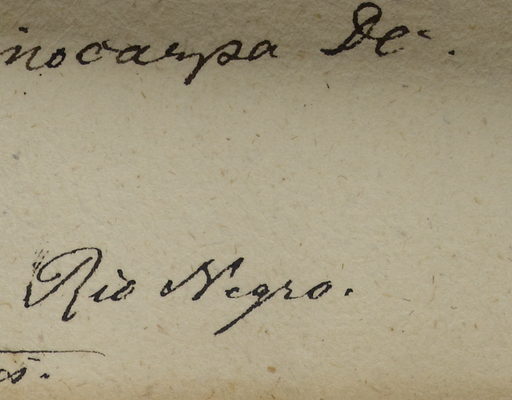 inocarpa Dc.
Rio Negro.